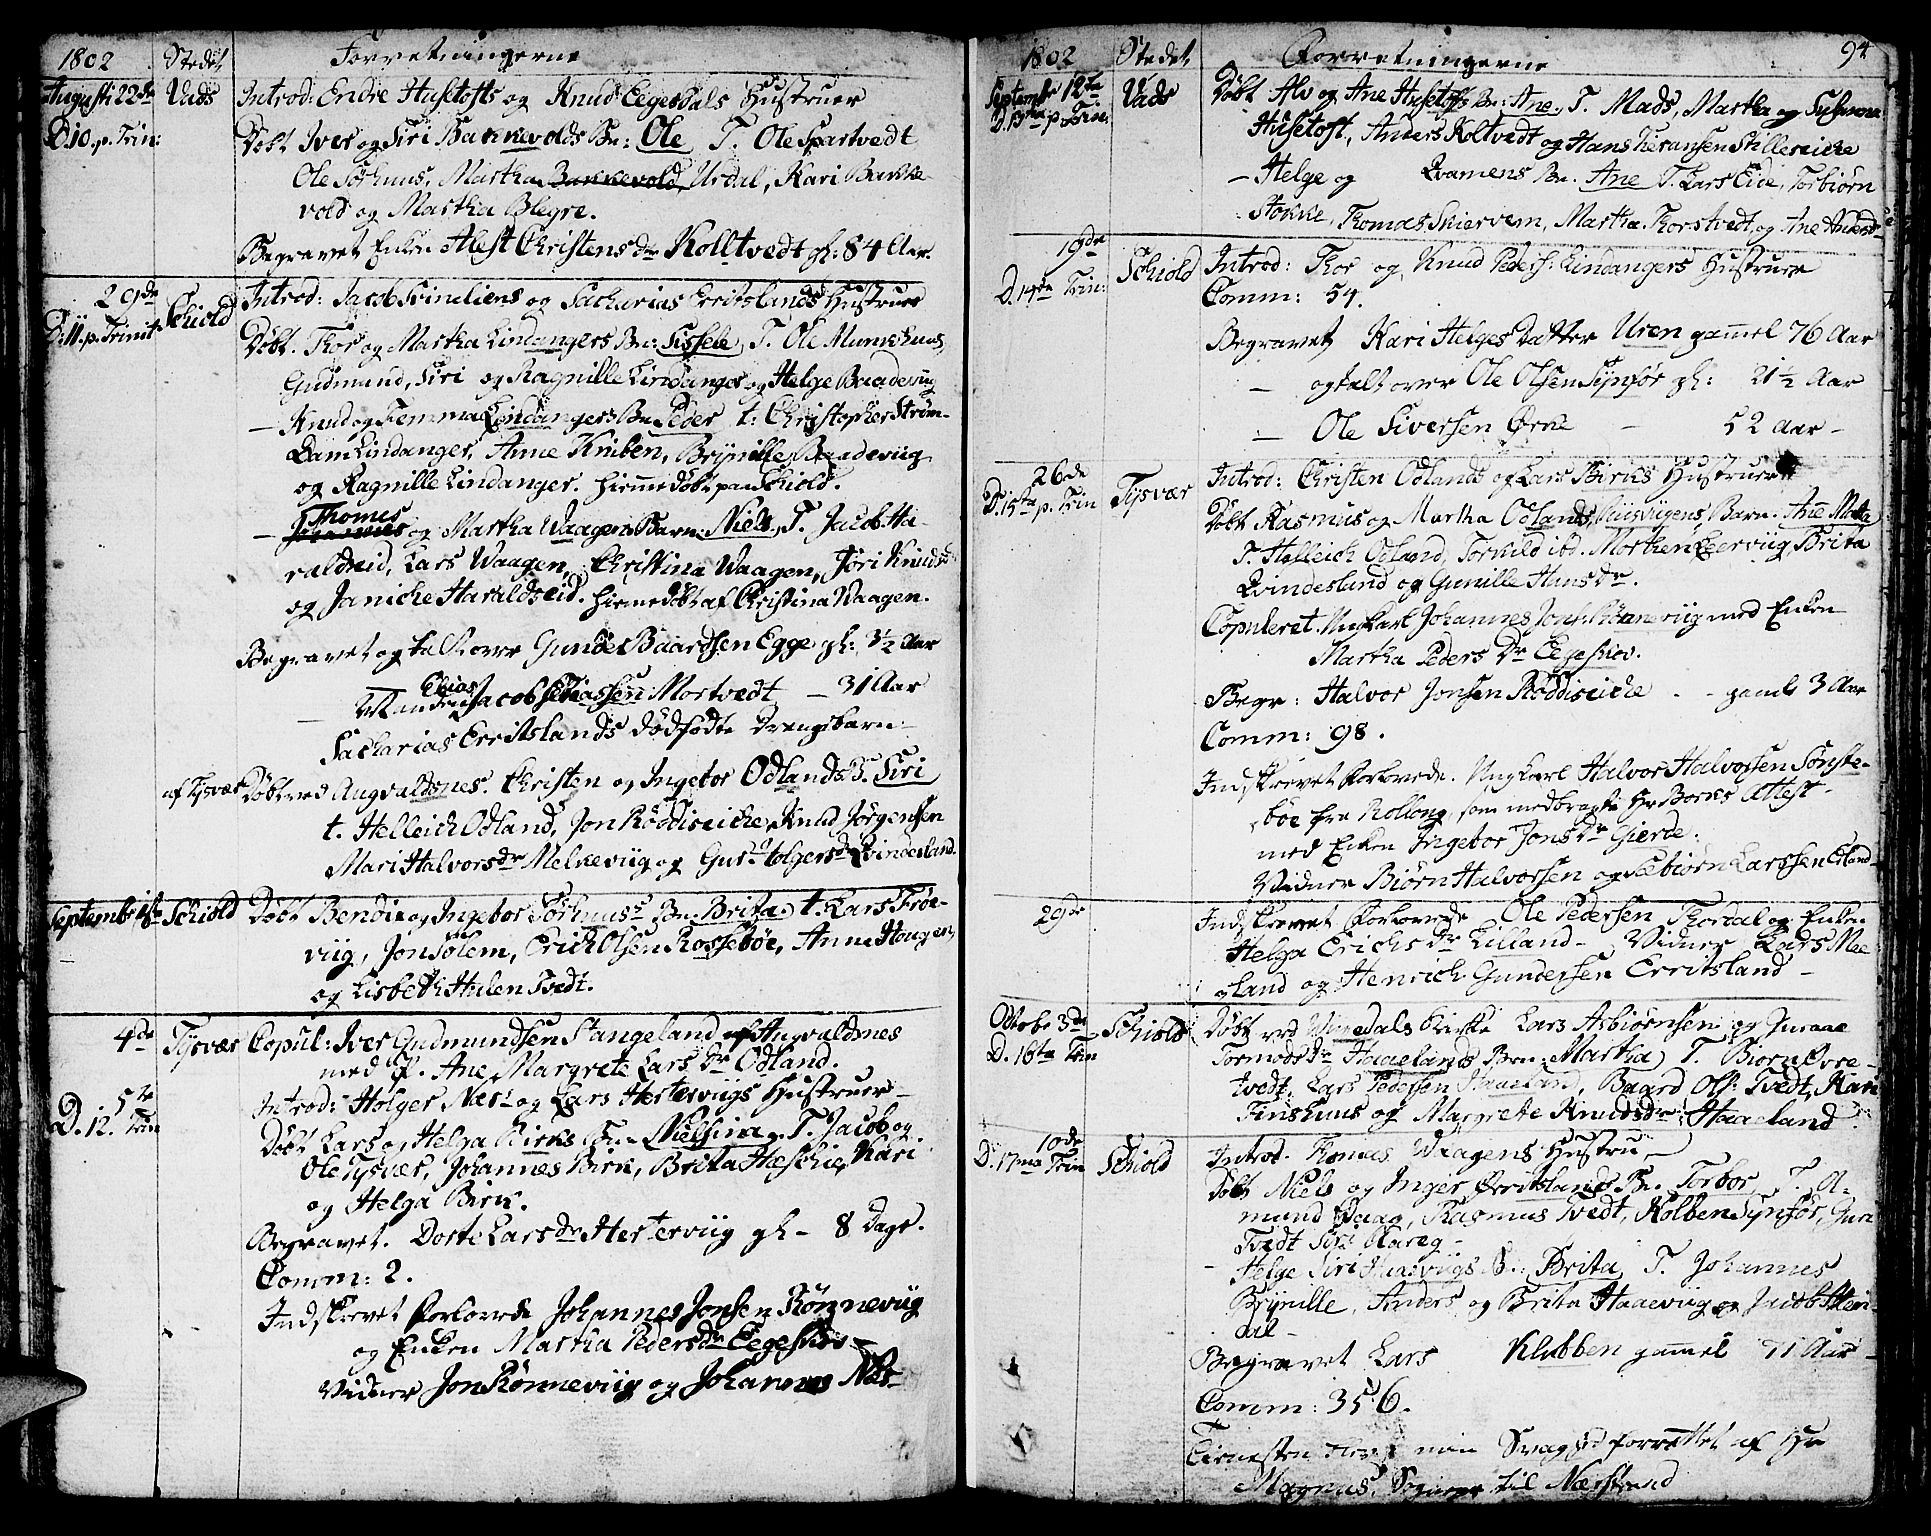 1802 Stedet Forretningerne
Augusti 22de Vads Introd: Endre Husetofts og Knud Eegesdals Hustruer
D. 10. p. Trin: Døbt Iver og Siri Bakkevolds Bn: Ole T. Ole Spartvedt
Ole Sørhuus, Martha Bakkevold, Urdal, Kari Bakke-
vold og Martha Blegre.
Begravet Enken Alest Christensdr Kolltvedt gl: 84 Aar.
29de Schiold Introd: Jacob Sviniliens og Sacharias Erritslands Hustruer
D. 11. p. Trinit: Døbt. Thor og Martha Lindangers Bn: Sissele, T. Ole Munkhuus,
Gudmund, Siri og Ragnille Lindanger og Helge Baadeviig
- Knud og Lindangers Bn Peder t: Christopher Strøm-
Lindanger, Anne Kniben, Brynille Baadeviig
og Ragnille Lindanger. hiemmedøbt paa Schiold.
Thomas
- Johannes og Martha Waagens Barn: Niels, T. Jacob Ha-
raldseid, Lars Waagen, Christina Waagen, Jøri Knudsd
og Janiche Haraldseid. hiemmedøbt af Christina Waagen.
Begravet og talt over Gunder Baardsen Egge gl: 3½ Aar
Elias
- Manden Jacob Eliassen Mortvedt - 31 Aar
Sacharias Erritslands dødfødte Drengebarn
af Tysvær Døbt ved Augvaldsnes. Christen og Ingebor Odlands Bn Siri
t. Helleich Odland, Jon Røddiseiche, Knud Jørgensen
Mari Halvorsdr Melkeviig og Holgersdr Qvindesland.
Septembr 1ste Schiold Døbt Bendix og Ingebor Sørhuuss Bn. Brita. t. Lars Frøe-
viig, Jon Solem, Erich Olsen Rossebøe, Anne Haugen
og Lisbeth Hulen Tvedt.
4de Tysvær Copul: Iver Gudmundsen Stangeland af Augvaldnes
med P. Ane Margrete Larsdr Odland.
5te Introd: Holger Nes og Lars Hertervigs Hustruer
D. 12. Trin Døbt Lars og Helga Birks Bn. Nielsina. T. Jacob og
Ole Tysvær, Johannes Birk, Brita Hæschie, Kari
og Helga Birk.
Begravet. Dorte Larsdr Hertervig gl - 8 Dage.
Comm: 2.
Indskrevet forlovede Johannes Jonsen Rønneviig
og Enken Martha Pedersdr Eegeskov
Vidner Jon Rønneviig og Johannes Næs
1802 Stedet Forretningerne 94
Septembr 12te Vads Døbt Alv og Ane Husetofts Bn: Ane, T. Mads, Martha og
D. 13de p. Trin: Husetoft, Anders Koltvedt og Hans Stillereiche
- Helge og Qvamens Bn. Ane T. Lars Eide, Torbiørn
Stokke, Thomas Skiervem, Martha Thorstvedt, og Ane
19de Schiold Introd: Thor og Knud Peders: Lindangers Hustruer
D. 14de Trin: Comm: 54.
Begravet Kari Helges Datter Uren gamel 76 Aar
- og talt over Ole Olsen Synfør gl: 21½ Aar
- Ole Siversen Ørke - 52 Aar -
26de Tysvær Introd: Christen Odlands og Lars Birks Hustruer
D. 15te p. Trin Døbt Rasmus og Martha Odlands, Barn. Ane Malta
T. Helleich Odland, Torkild ibd. Morthen Leerviig, Brita
Qvindesland og Gunille Hansdr.
Copuleret. Ungkarl Johannes Jons: Rønneviig med Enken
Martha Peders Dr Eegeskov.
Begr: Halvor Jonsen Røddiseiche - - gamel 3 Aar
Comm: 98.
Indskrevet Forlovede. Ungkarl Halvor Halvorsen Sønste-
bøe fra Rollong, som medbragte Hr Borchs Attest
med Enken Ingebor Jonsdr Gierde.
Vidner Biørn Halvorsen og Sæbiørn Larssen Erland
29de Indskrevet Forlovede Ole Pedersen Thordal og Enken
Helga Erichsdr Lilland - Vidner Lars Mæ-
land og Henrich Gundersen Erritsland -
Octobr 3de Schiold Døbt ved Wigedals Kirke Lars Asbiørnsen og Guraae
D. 16te Trin Tormodsdr Haaelands Barn: Martha, T. Biørn Øvre-
tvedt, Lars Pedersen Haaeland, Baard Ols: Tvedt, Kari
Finshuus og Margrete Knudsdr Haaeland.
10de Schiold Introd. Thomas Waagens Hustru -
D. 17me Trin Døbt Niels og Inger Erritslands Bn. Torbor, T. A-
mund Waag, Rasmus Tvedt, Kolben Synfør, Guri
Tvedt Siri
- Helge Siri Haaeviigs Bn: Brita T. Johannes
Brynille, Anders og Brita Haaeviig og Jacob
dal -
Begravet Lars Klubben gammel 71 Aar -
Comm: 356.
Tienesten forrettet af Hr
Magnus, til Nærstrand